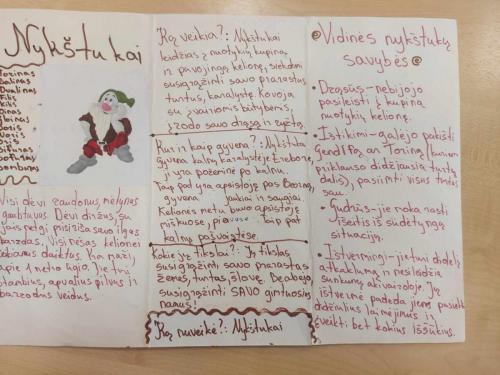 Nykštukai
Torinas
Balinas
Dvalinas
Filis
Kilis
Oinas
Gloinas
Doris
Noris
Boris
Bofuras
Bomburas
Visi dėvi raudonus, mėlynus
gaubtuvus. Dėvi diržus, su
jais netgi prisiriša savo ilgas
barzdas. Visi nėšas kelionei
labamus daiktus. Yra maži,
apie 1 metro ūgio. Jie turi
stambius, apvalius pilvus ir
barzdotus veidus.
Ką veikia?: Nykštukai
leidžias į nuotykių kupiną
ir pavojingą kelionę, siekdami
susigrąžinti savo prarastus
turtus, karalystę. Kovoja
su įvairiomis būtybėmis,
įrodo savo drąsą ir ryžtą.
Kur ir kaip gyvena?: Nykštukai
gyvena kalnų karalystėje Erebore,
ji yra požeminė po kalnu.
Taip pat yra apsistoję pas Beorną,
gyvena jaukiai ir saugiai.
Kelionės metu buvo apsistoję
miškuose, taip pat
kalnų pašvaistėse.
Kokie jų tikslai?: Jų tikslas
susigrąžinti savo prarastas
žemes, turtus, šlovę. Be abejo
susigrąžinti SAVO gimtuosius
namus!
Ką nuveikė?: Nykštukai
Vidinės nykštukų
savybės
• Drąsūs - nebijojo
pasileisti į kupiną
nuotykių kelionę.
• Ištikimi - galėjo palikti
Gendalfą an Toriną (kuriem
priklauso didžiausia turtų
dalis), pasiimti visus turtus
sau.
• Gudrūs - jie roką rasti
išeitis iš sudėtyngų
situacijų.
• Ištvermingi - jie turi didelę
atkaklumą ir nesileidžia
sunkumų akivaizdoje. Jų
ištvermė padeda jiems pasiekti
didžiulius laimėjimus ir
įveikti bet kokius iššūkius.